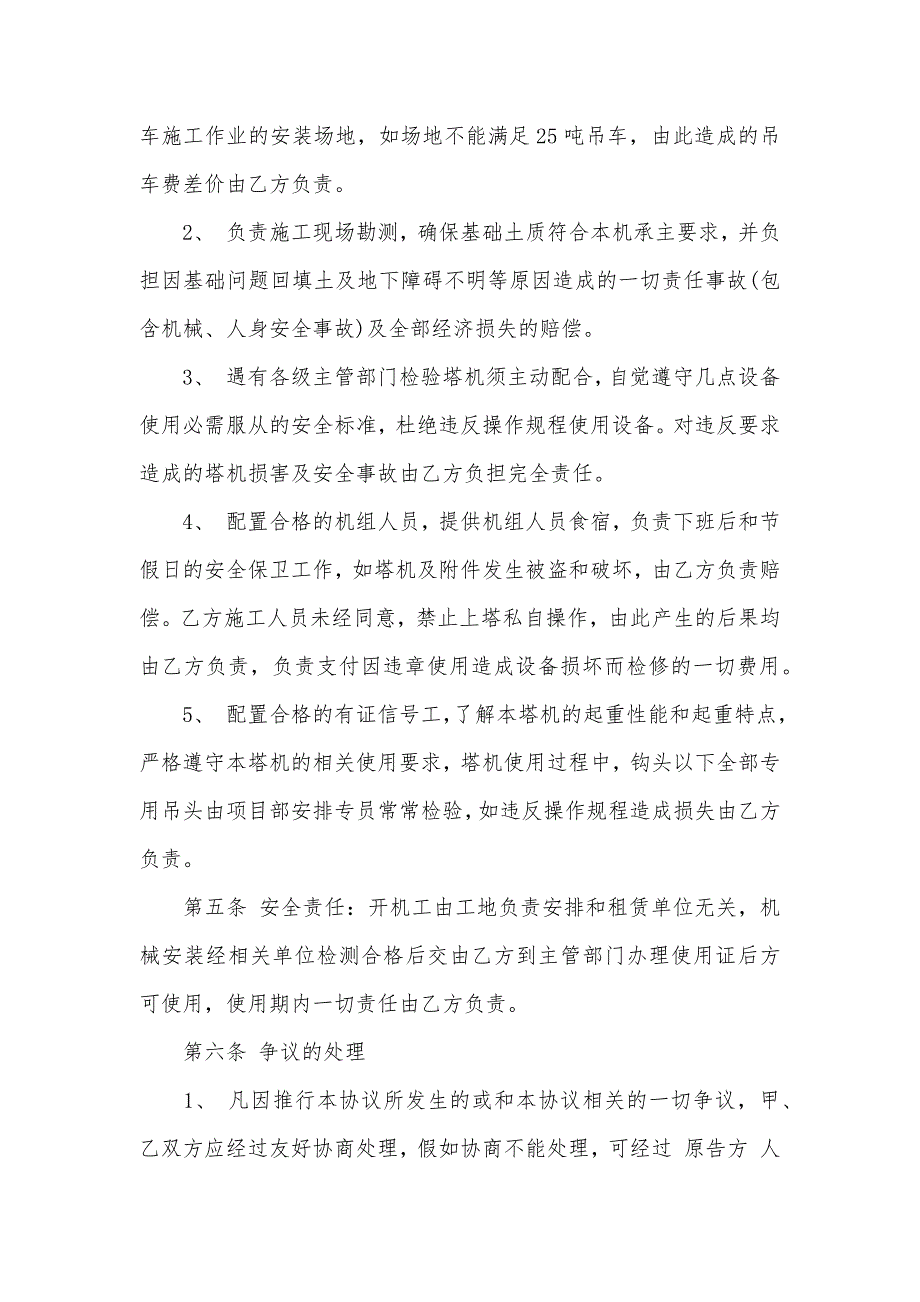 车施工作业的安装场地，如场地不能满足 25 吨吊车，由此造成的吊
车费差价由乙方负责。
2、 负责施工现场勘测，确保基础土质符合本机承主要求，并负
担因基础问题回填土及地下障碍不明等原因造成的一切责任事故(包
含机械、人身安全事故)及全部经济损失的赔偿。
3、 遇有各级主管部门检验塔机须主动配合，自觉遵守几点设备
使用必需服从的安全标准，杜绝违反操作规程使用设备。对违反要求
造成的塔机损害及安全事故由乙方负担完全责任。
4、 配置合格的机组人员，提供机组人员食宿，负责下班后和节
假日的安全保卫工作，如塔机及附件发生被盗和破坏，由乙方负责赔
偿。乙方施工人员未经同意，禁止上塔私自操作，由此产生的后果均
由乙方负责，负责支付因违章使用造成设备损坏而检修的一切费用。
5、 配置合格的有证信号工，了解本塔机的起重性能和起重特点，
严格遵守本塔机的相关使用要求，塔机使用过程中，钩头以下全部专
用吊头由项目部安排专员常常检验，如违反操作规程造成损失由乙方
负责。
第五条 安全责任：开机工由工地负责安排和租赁单位无关，机
械安装经相关单位检测合格后交由乙方到主管部门办理使用证后方
可使用，使用期内一切责任由乙方负责。
第六条 争议的处理
1、 凡因推行本协议所发生的或和本协议相关的一切争议，甲、
乙双方应经过友好协商处理，假如协商不能处理，可经过 原告方 人